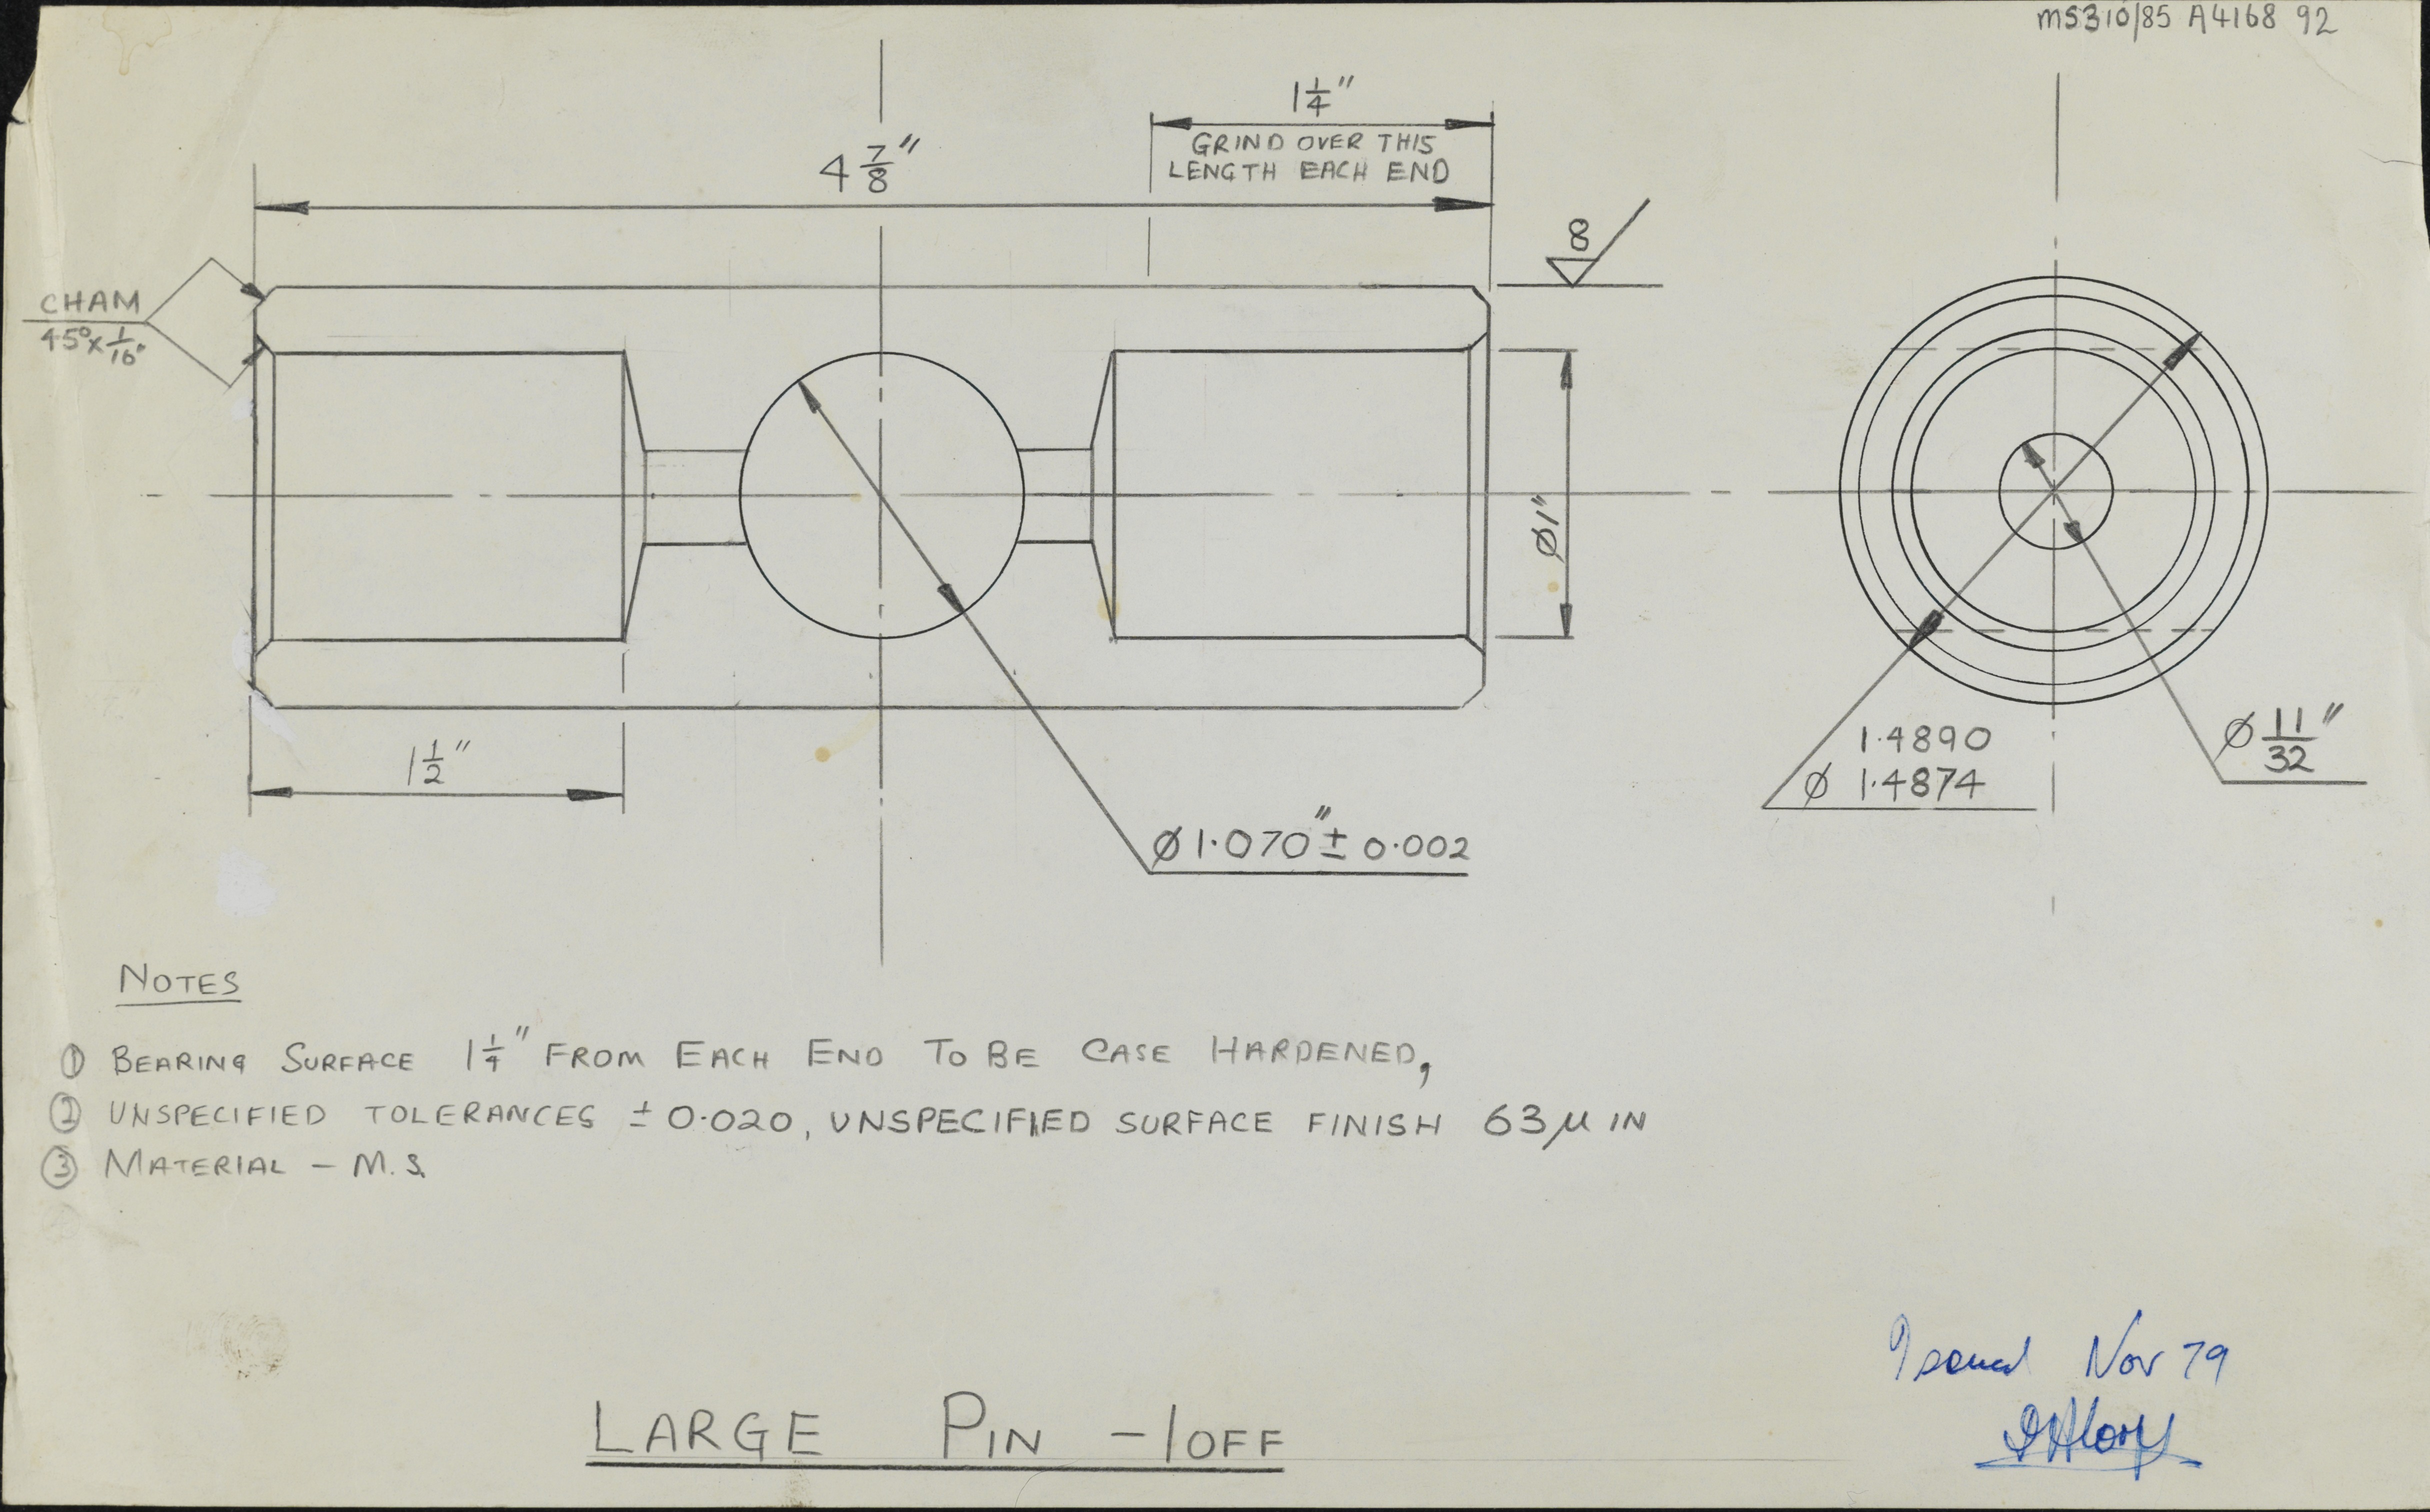 MS310/85 A4168 92
1 1/4"
GRIND OVER THIS
LENGTH EACH END
4 7/8"
8
CHAM
45° x 1/16"
Ø1"
1 1/2"
Ø1.070" ± 0.002
1.4890
Ø 1.4874
Ø 11/32"
NOTES
① BEARING SURFACE 1 1/4" FROM EACH END TO BE CASE HARDENED,
② UNSPECIFIED TOLERANCES ± 0.020, UNSPECIFIED SURFACE FINISH 63 μ IN
③ MATERIAL – M.S.
Issued Nov 79
LARGE PIN – 1 OFF